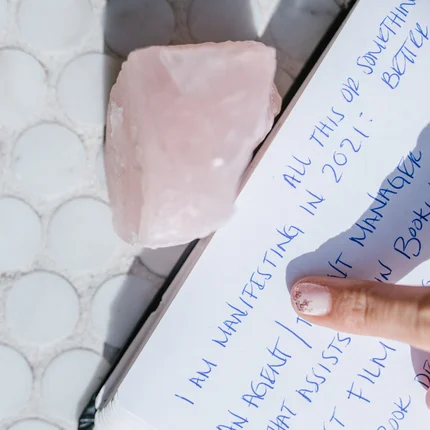 ALL THIS OR SOMETHING
BETTER
I AM MANIFESTING IN 2021:
AN AGENT / MANAGER
THAT ASSISTS IN BOOKI
FILM
BOOK